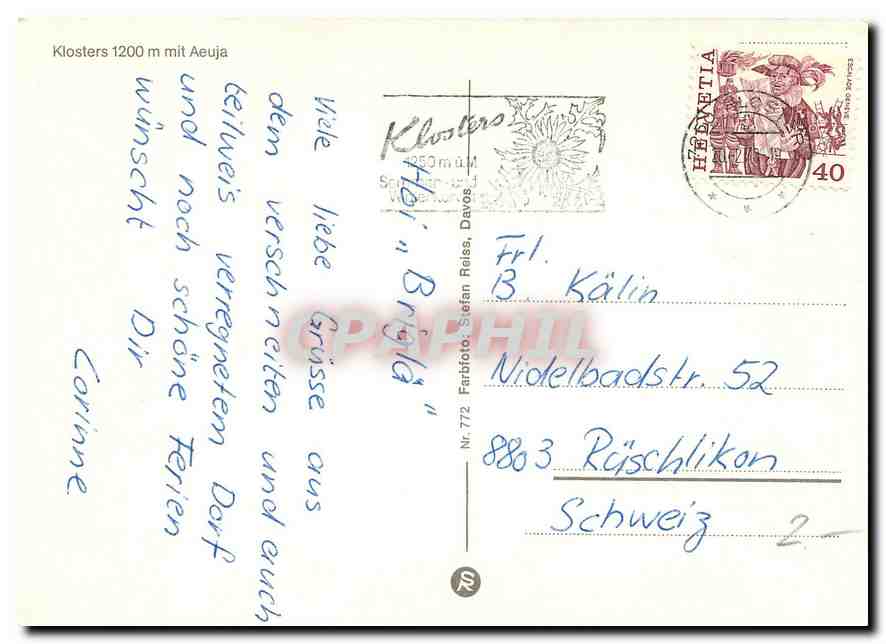 Klosters 1200 m mit Aeuja
Hoi "Briglä"
Viele liebe Grüsse aus
dem verschneiten und auch
teilweis verregnetem Dorf
und noch schöne Ferien
wünscht Dir
Corinne
Nr. 772 Farbfoto: Stefan Reiss, Davos
SR
Klosters
1250 m ü.M
HELVETIA
ESCALADE GENÈVE
40
Frl.
B. Kälin
Nidelbadstr. 52
8803 Rüschlikon
Schweiz
2.-
CPAPHIL